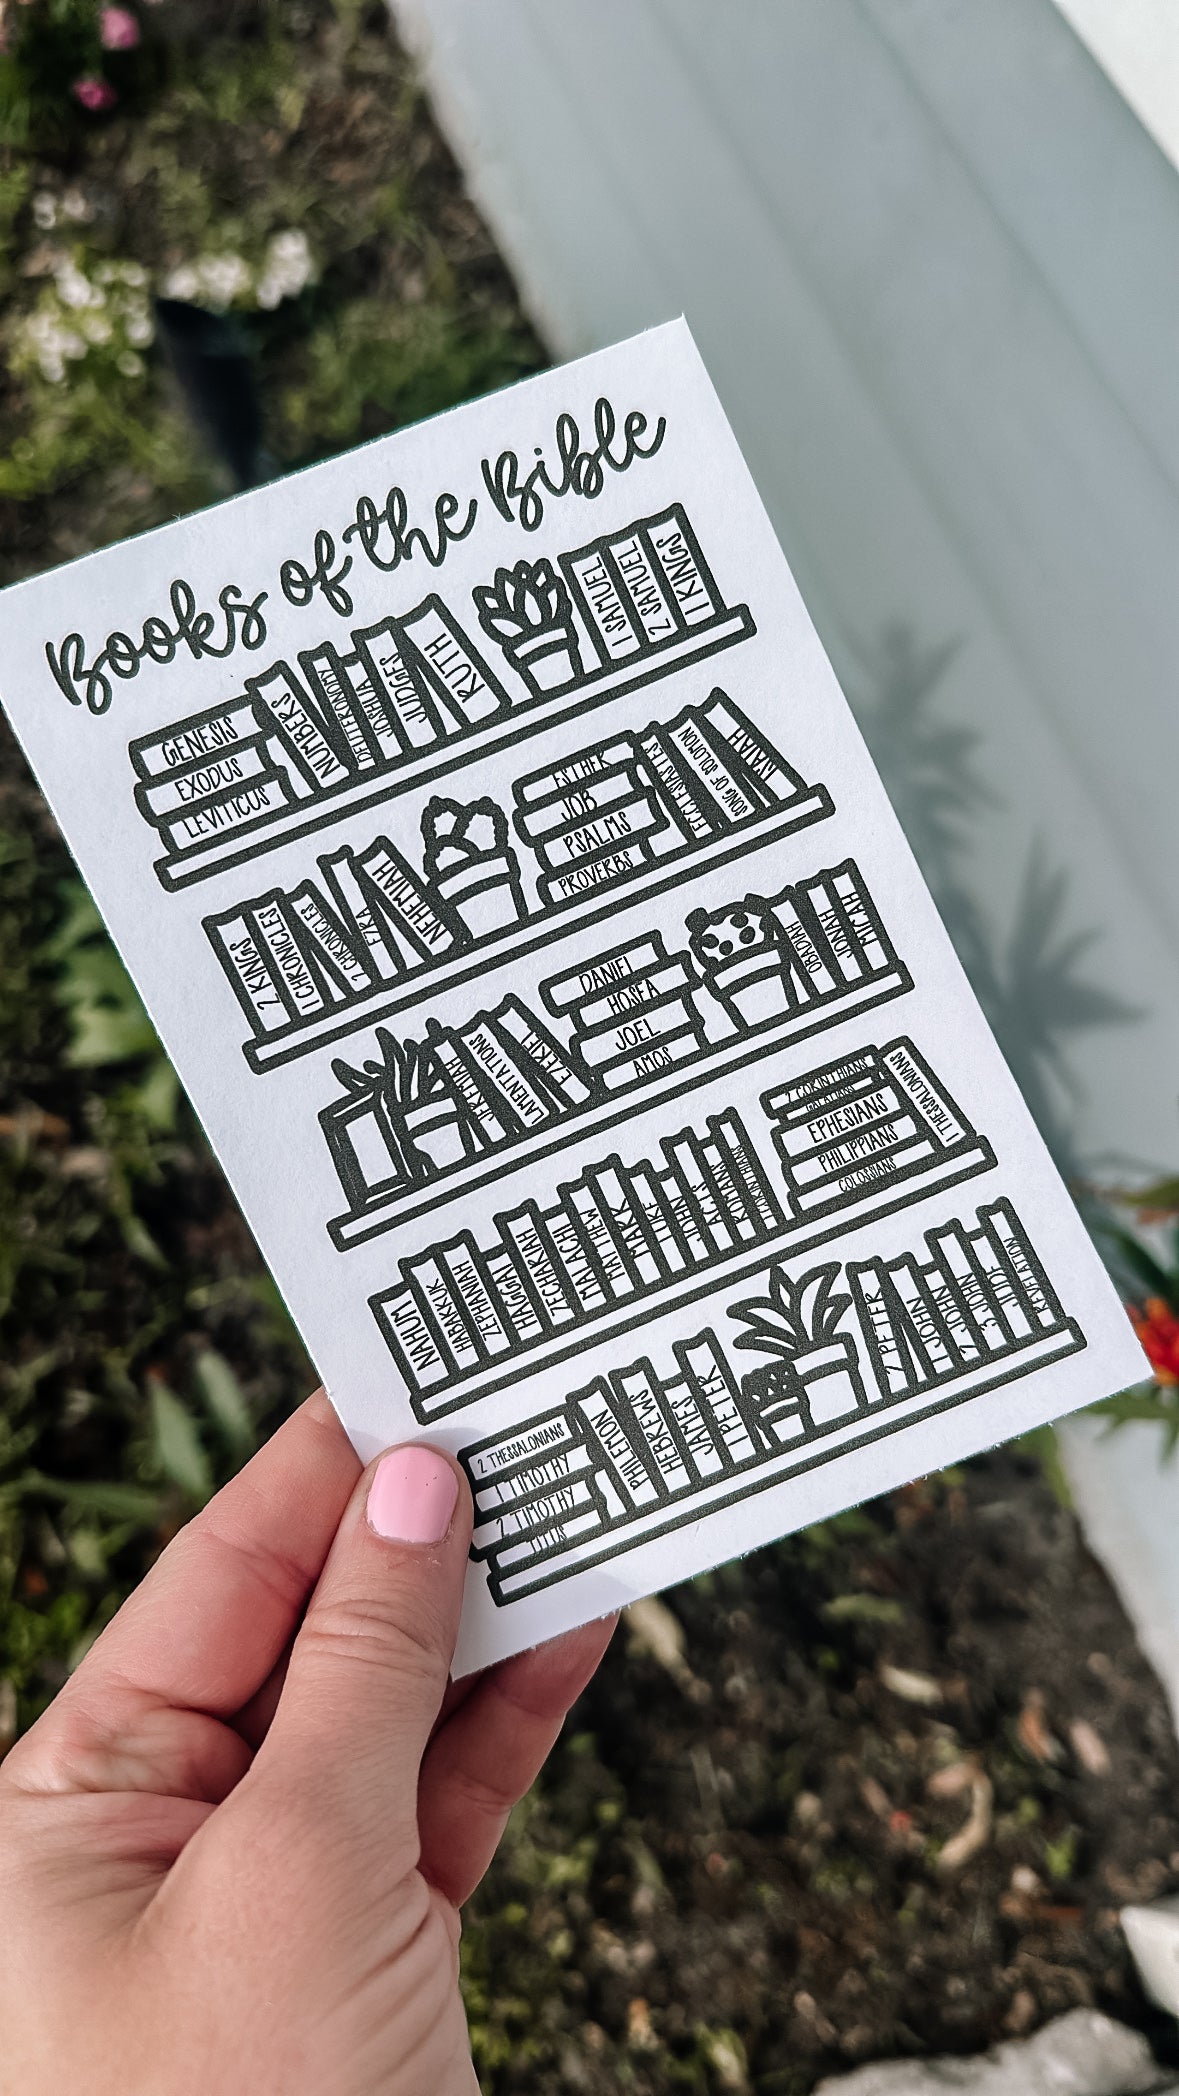 Books of the Bible
GENESIS
EXODUS
LEVITICUS
NUMBERS
DEUTERONOMY
JOSHUA
JUDGES
RUTH
1 SAMUEL
2 SAMUEL
1 KINGS
2 KINGS
1 CHRONICLES
2 CHRONICLES
EZRA
NEHEMIAH
ESTHER
JOB
PSALMS
PROVERBS
ECCLESIASTES
SONG OF SOLOMON
ISAIAH
JEREMIAH
LAMENTATIONS
EZEKIEL
DANIEL
HOSEA
JOEL
AMOS
OBADIAH
JONAH
MICAH
NAHUM
HABAKKUK
ZEPHANIAH
HAGGAI
ZECHARIAH
MALACHI
MATTHEW
MARK
LUKE
JOHN
ACTS
ROMANS
1 CORINTHIANS
2 CORINTHIANS
GALATIANS
EPHESIANS
PHILIPPIANS
COLOSSIANS
1 THESSALONIANS
2 THESSALONIANS
1 TIMOTHY
2 TIMOTHY
TITUS
PHILEMON
HEBREWS
JAMES
1 PETER
2 PETER
1 JOHN
2 JOHN
3 JOHN
JUDE
REVELATION